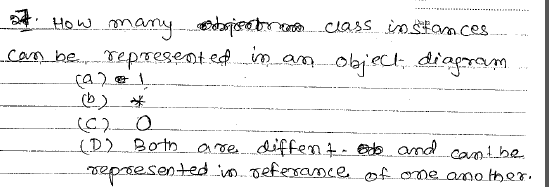 27. How many class instances
can be represented in an object diagram
(a) 1
(b) *
(C) 0
(D) Both are diffent. and can't be
represented in referance of one another.